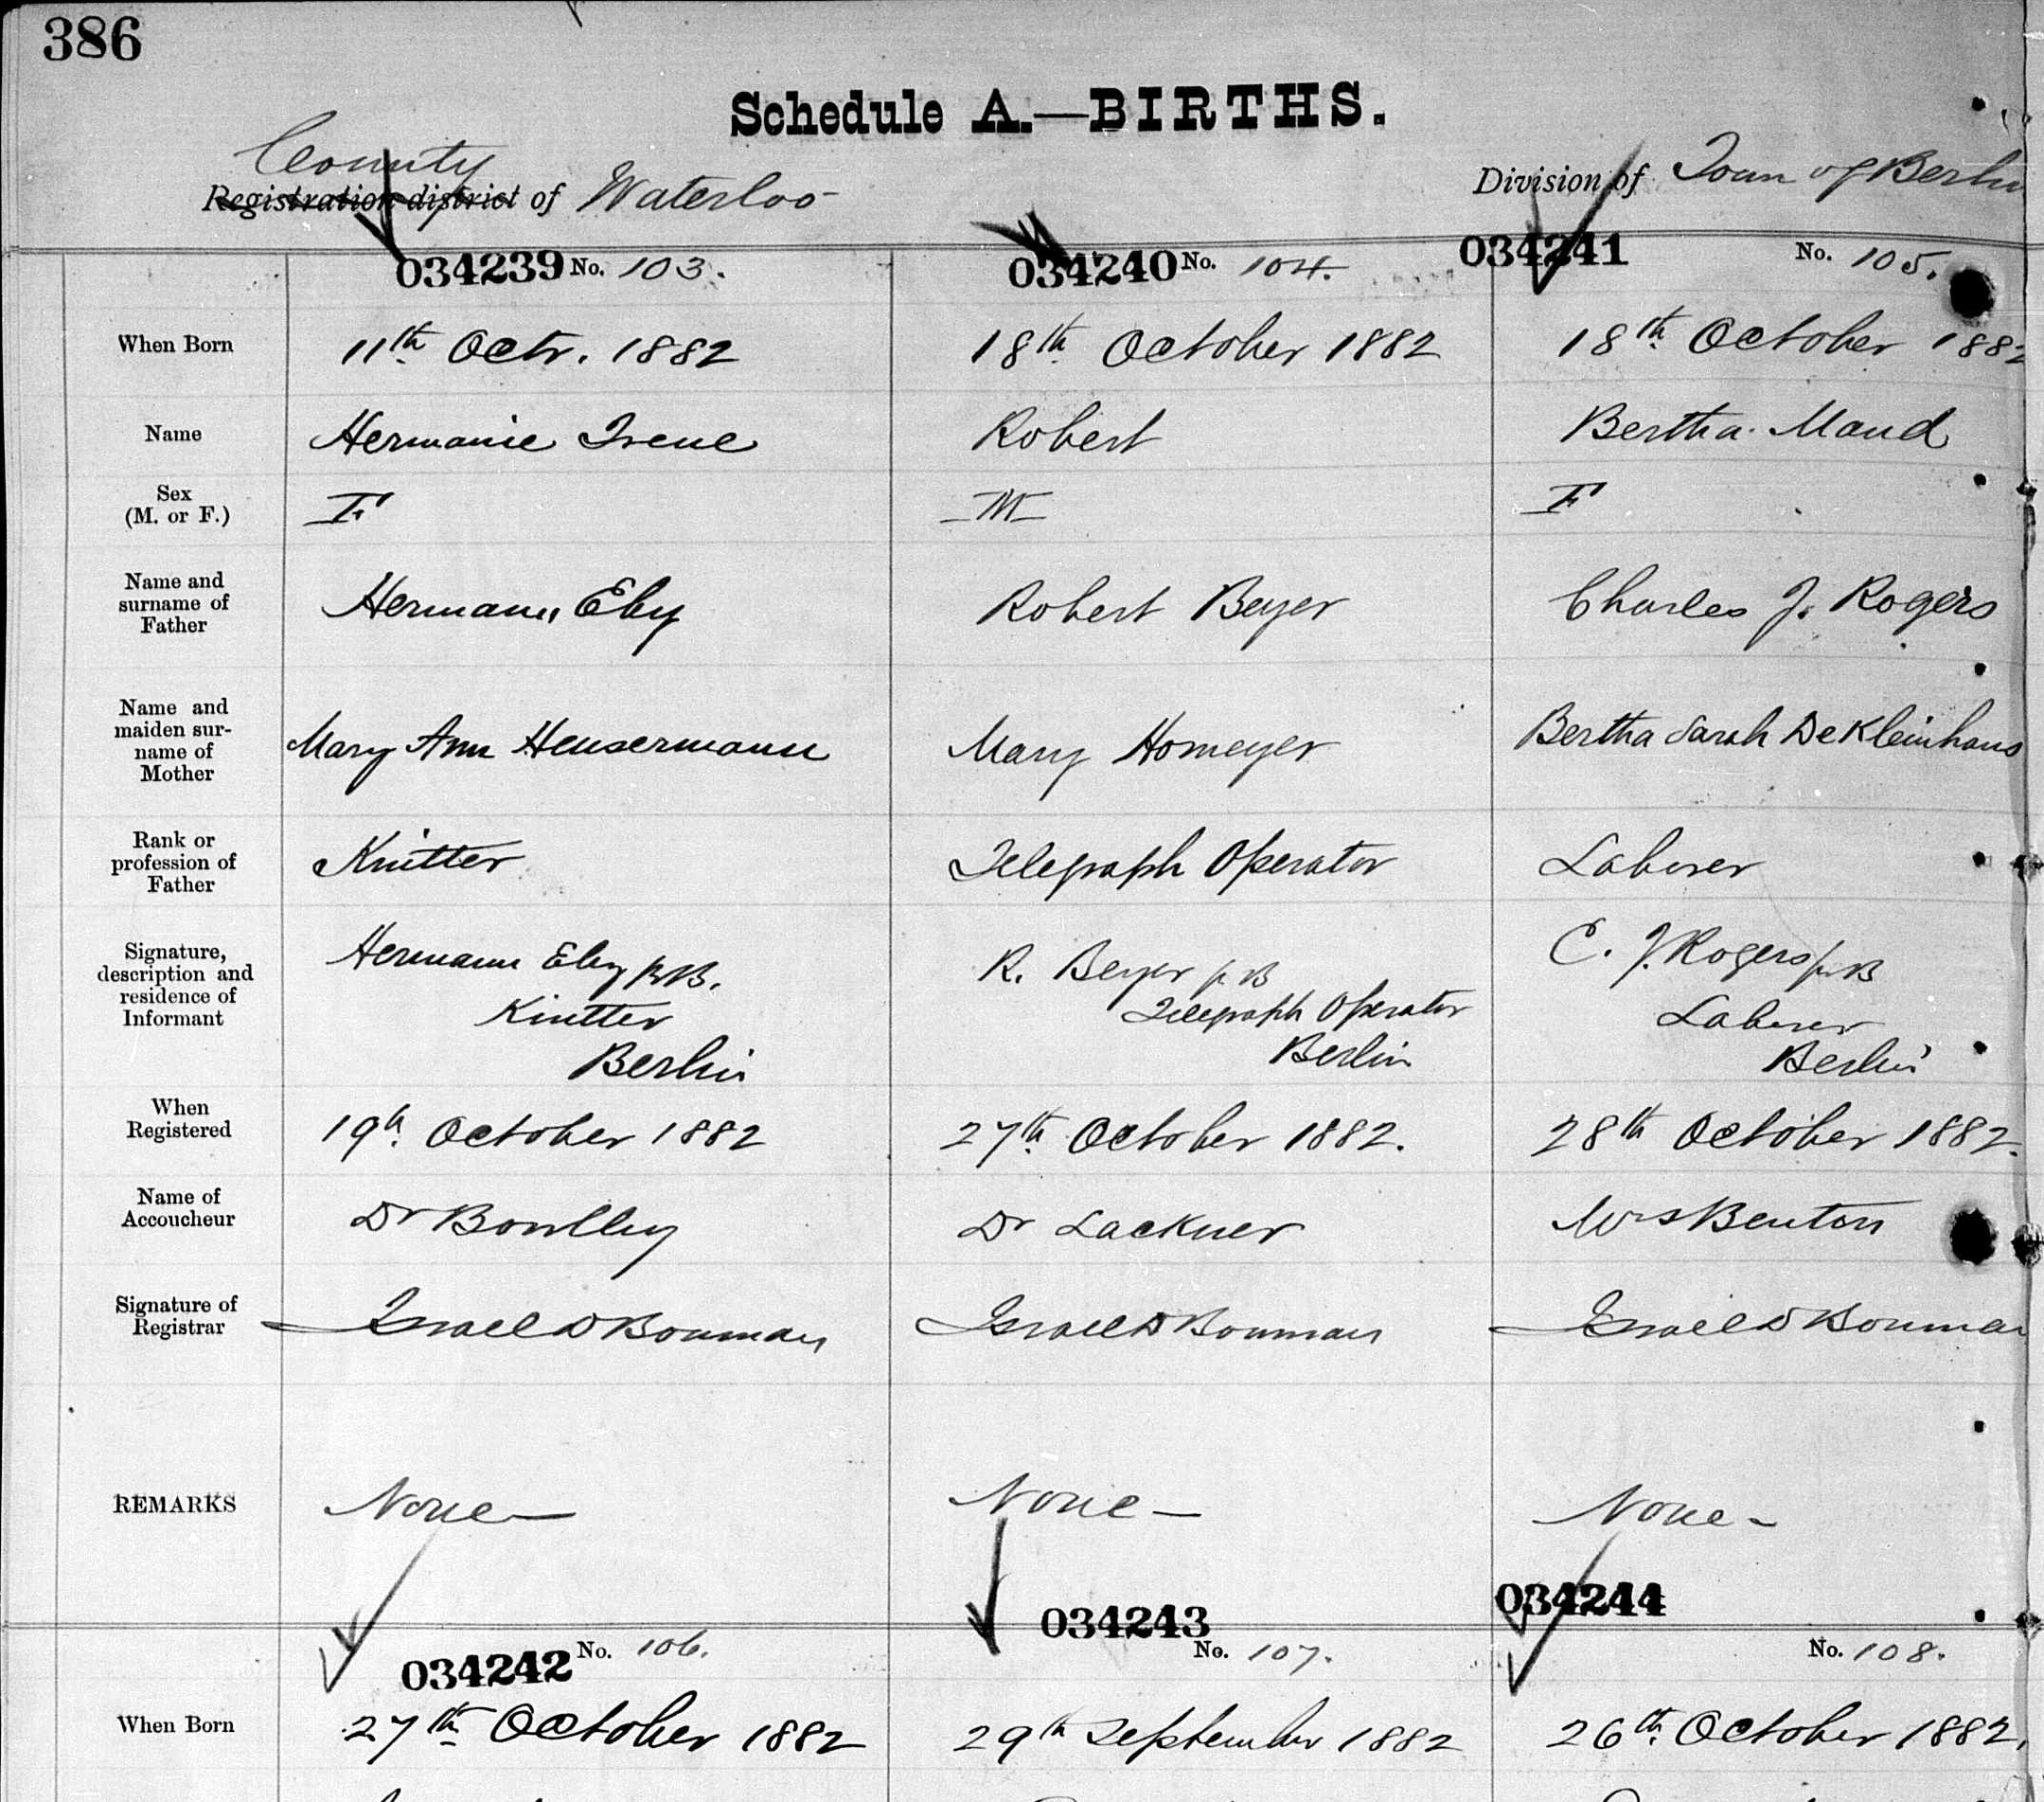 386
Schedule A.—BIRTHS.
County
Registration district of Waterloo
Division of Town of Berlin
034239 No. 103.
034240 No. 104.
034241 No. 105.
When Born
11th Octr. 1882
18th October 1882
18th October 1882
Name
Hermanie Irene
Robert
Bertha Maud
Sex
(M. or F.)
F
M
F
Name and
surname of
Father
Hermann Eby
Robert Beyer
Charles J. Rogers
Name and
maiden sur-
name of
Mother
Mary Ann Heusermann
Mary Homeyer
Bertha Sarah DeKleinhans
Rank or
profession of
Father
Knitter
Telegraph Operator
Laborer
Signature,
description and
residence of
Informant
Hermann Eby pr B.
Knitter
Berlin
R. Beyer pr B
Telegraph Operator
Berlin
C. J. Rogers pr B
Laborer
Berlin
When
Registered
19th October 1882
27th October 1882.
28th October 1882.
Name of
Accoucheur
Dr Bowlby
Dr Lackner
Mrs Benton
Signature of
Registrar
Israel D Bowman
Israel D Bowman
Israel D Bowman
REMARKS
None—
None—
None-
034242 No. 106.
034243 No. 107.
034244 No. 108.
When Born
27th October 1882
29th September 1882
26th October 1882.